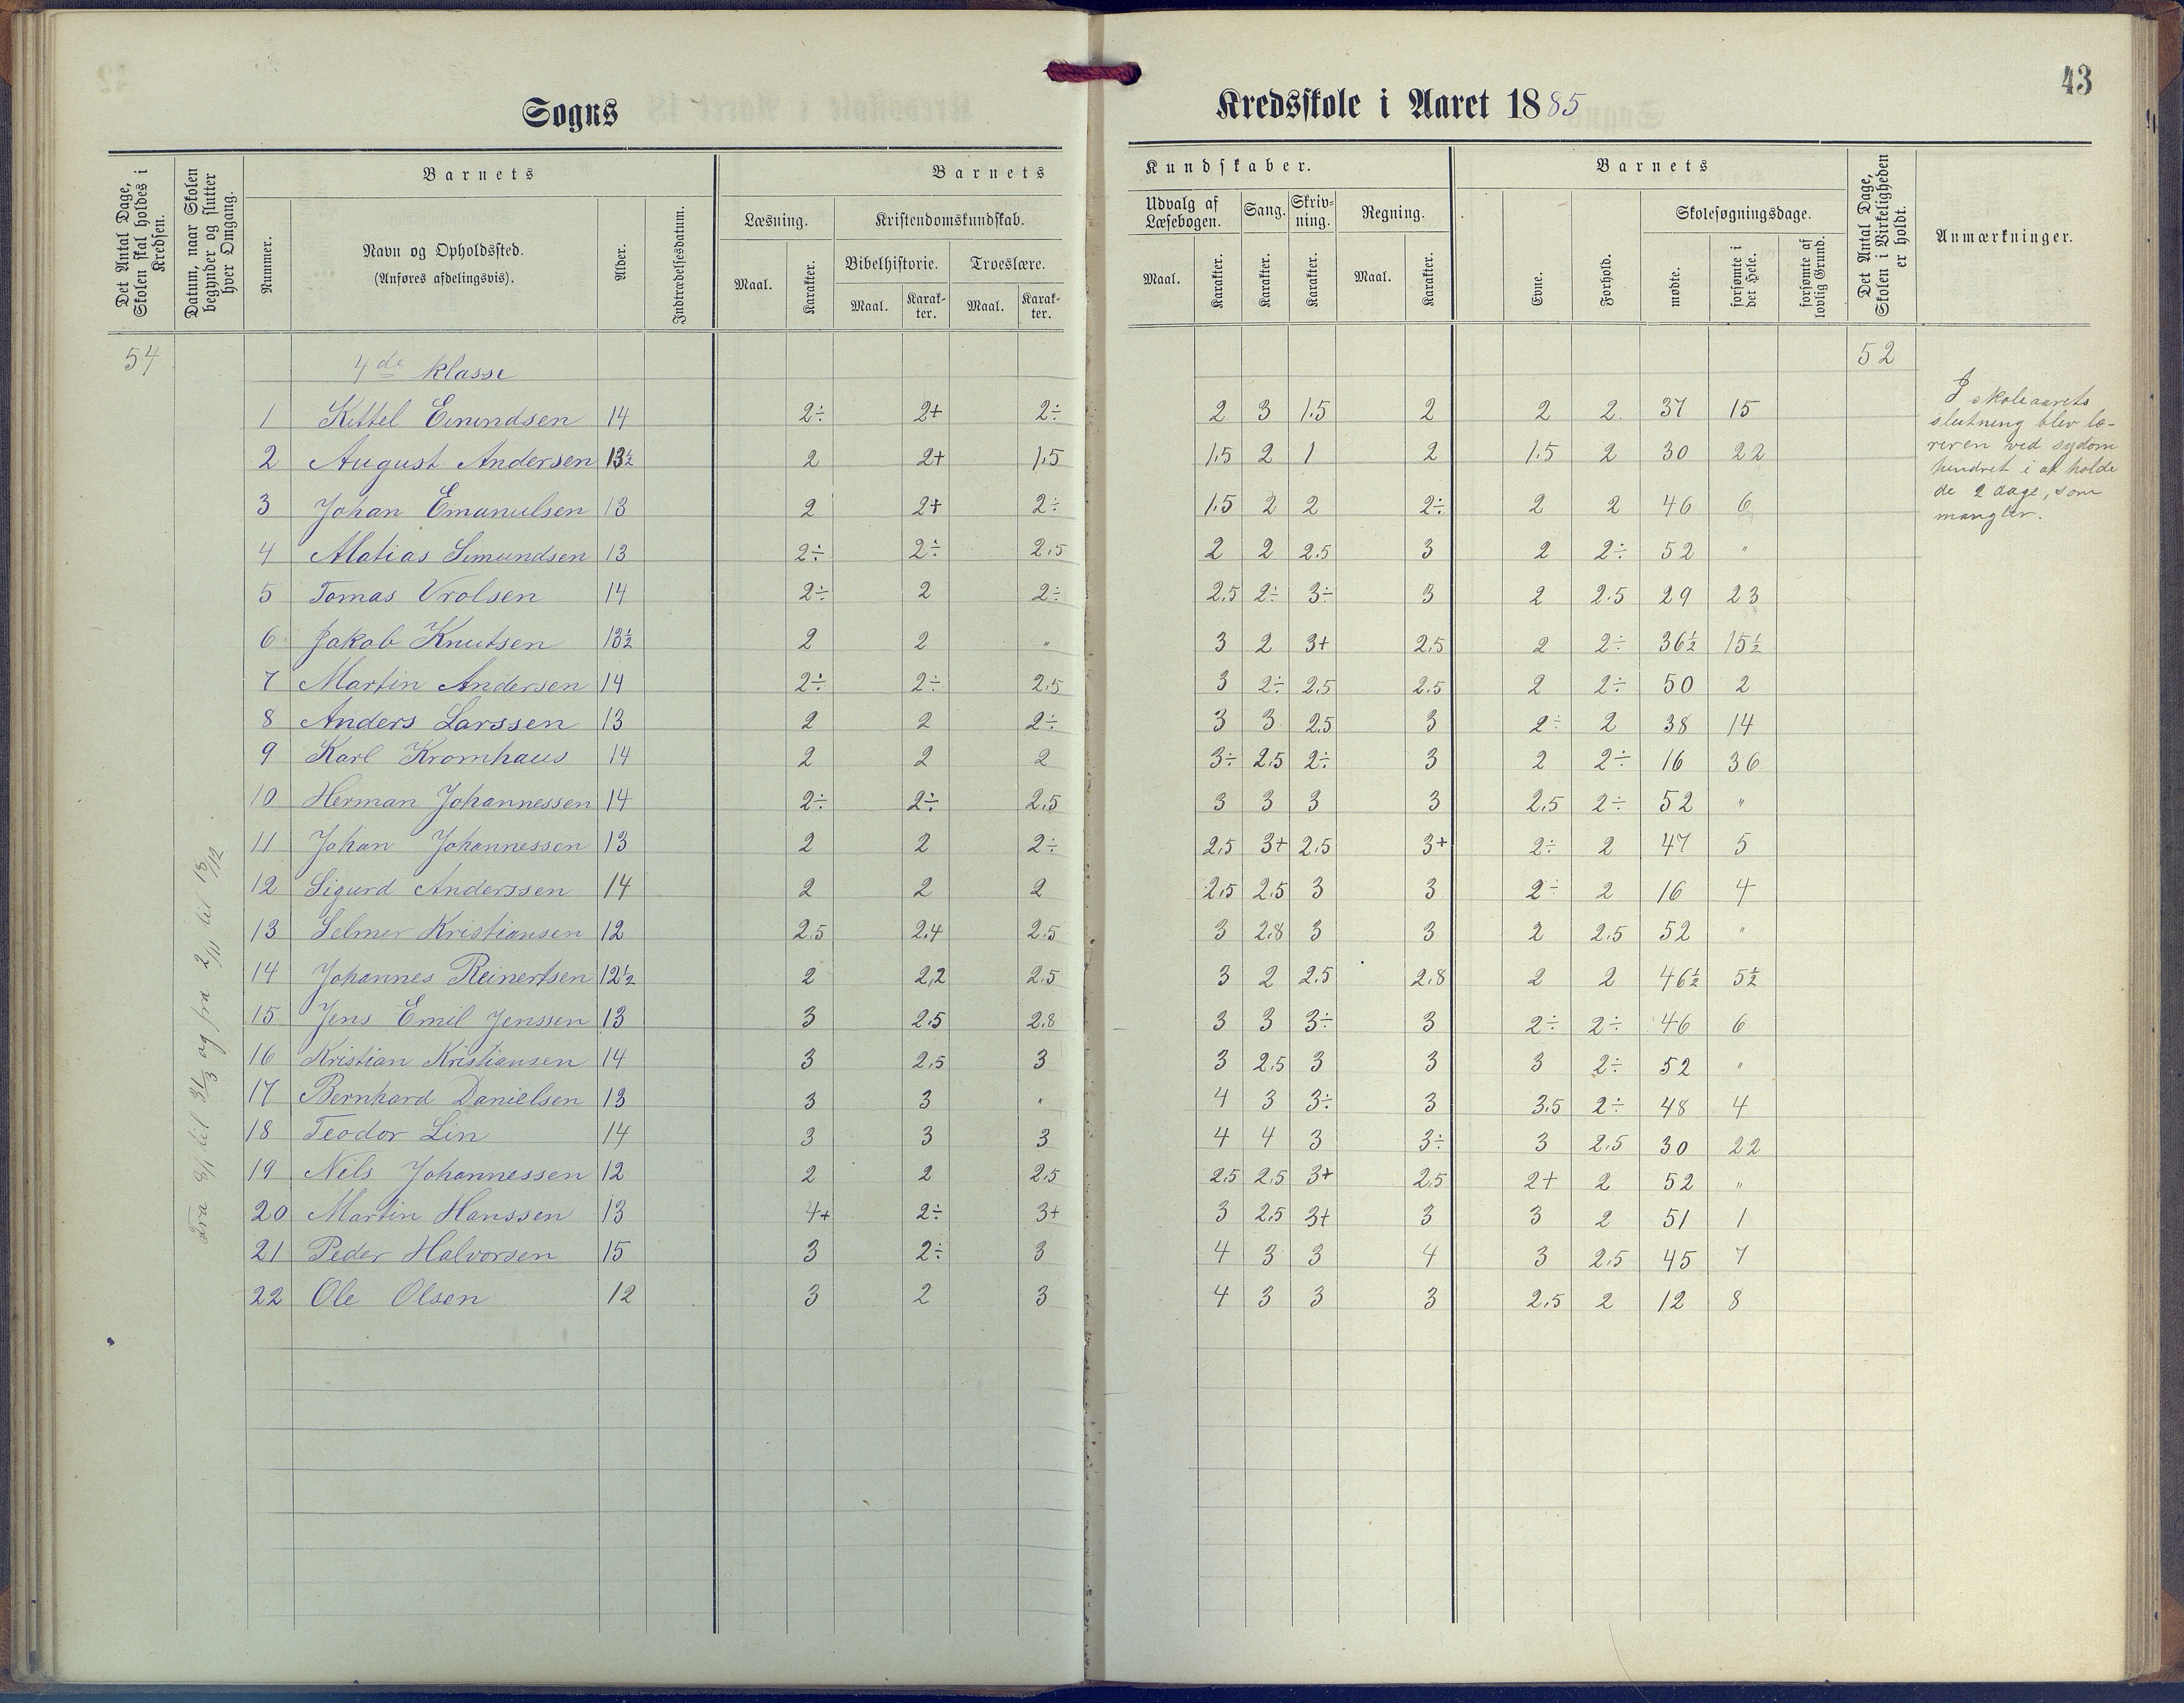 43
Sogns Kredsskole i Aaret 1885
Det Antal Dage, Skolen skal holdes i Kredsen.
Datum, naar Skolen begynder og slutter hver Omgang.
Barnets
Nummer.
Navn og Opholdssted.
(Anføres afdelingsvis).
Alder.
Indtrædelsesdatum.
Barnets Kundskaber.
Læsning.
Maal. Karakter.
Kristendomskundskab.
Bibelhistorie. Troeslære.
Maal. Karakter. Maal. Karakter.
Udvalg af Læsebogen. Sang. Skrivning. Regning.
Maal. Karakter. Karakter. Karakter. Maal. Karakter.
Barnets
Evne. Forhold.
Skolesøgningsdage.
mødte. forsømte i det Hele. forsømte af lovlig Grund.
Det Antal Dage, Skolen i Virkeligheden er holdt.
Anmærkninger.
54 4de klasse 52
1 Kittel Emundsen 14 2÷ 2+ 2÷ 2 3 1.5 2 2 2 37 15
2 August Andersen 13½ 2 2+ 1,5 1,5 2 1 2 1.5 2 30 22
3 Johan Emanuelsen 13 2 2+ 2÷ 1.5 2 2 2÷ 2 2 46 6
4 Matias Simundsen 13 2÷ 2÷ 2.5 2 2 2.5 3 2 2÷ 52 "
5 Tomas Vrolsen 14 2÷ 2 2÷ 2.5 2÷ 3÷ 3 2 2.5 29 23
6 Jakob Knutsen 13½ 2 2 " 3 2 3+ 2,5 2 2÷ 36½ 15½
7 Martin Andersen 14 2÷ 2÷ 2,5 3 2÷ 2,5 2,5 2 2÷ 50 2
8 Anders Larssen 13 2 2 2÷ 3 3 2,5 3 2÷ 2 38 14
9 Karl Kromhaus 14 2 2 2 3÷ 2.5 2÷ 3 2 2÷ 16 36
10 Herman Johannessen 14 2÷ 2÷ 2,5 3 3 3 3 2.5 2÷ 52 "
11 Johan Johannessen 13 2 2 2÷ 2,5 3+ 2.5 3+ 2÷ 2 47 5
12 Sigurd Anderssen 14 2 2 2 2,5 2.5 3 3 2÷ 2 16 4
13 Selmer Kristiansen 12 2.5 2.4 2.5 3 2.8 3 3 2 2.5 52 "
14 Johannes Reinertsen 12½ 2 2,2 2.5 3 2 2.5 2.8 2 2 46½ 5½
15 Jens Emil Jenssen 13 3 2.5 2.8 3 3 3÷ 3 2÷ 2÷ 46 6
16 Kristian Kristiansen 14 3 2,5 3 3 2.5 3 3 3 2÷ 52 "
17 Bernhard Danielsen 13 3 3 " 4 3 3÷ 3 3.5 2÷ 48 4
18 Teodor Lin 14 3 3 3 4 4 3 3÷ 3 2.5 30 22
19 Nils Johannessen 12 2 2 2,5 2.5 2.5 3+ 2,5 2+ 2 52 "
20 Martin Hanssen 13 4+ 2÷ 3+ 3 2,5 3+ 3 3 2 51 1
21 Peder Halvorsen 15 3 2÷ 3 4 3 3 4 3 2,5 45 7
22 Ole Olsen 12 3 2 3 4 3 3 3 2.5 2 12 8
Fra 8/1 til 31/3 og fra 2/11 til 18/12
I skoleaarets
slutning blev læ-
reren ved sydom
hindret i at holde
de 2 dage, som
mangler.